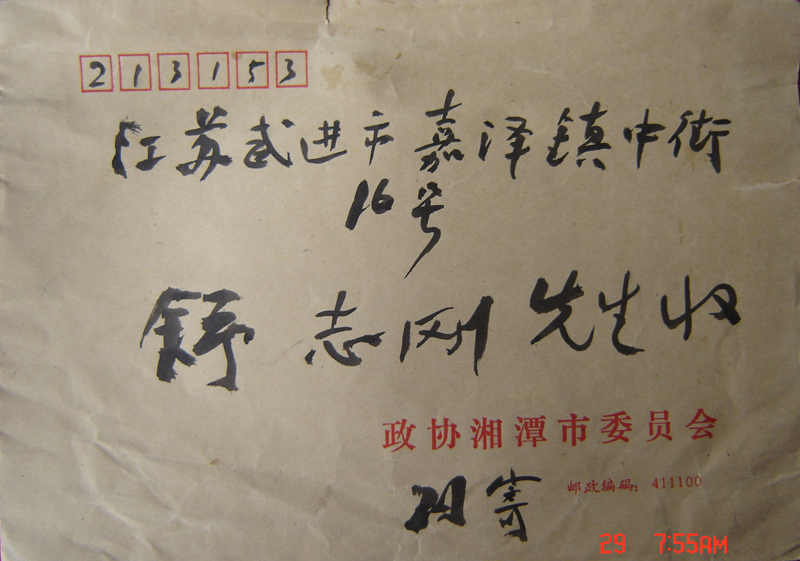 213153
江苏武进市嘉泽镇中街
16号
舒志刚先生收
政协湘潭市委员会
寄
邮政编码：411100
29 7:55AM